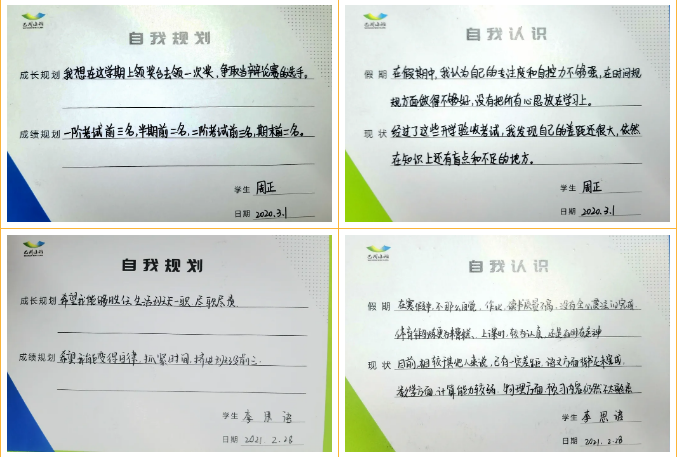 自我规划
成长规划 我想在这学期上领奖台去领一次奖，争取当辩论赛的选手。
成绩规划 一阶考试前三名，半期前二名，二阶考试前三名，期末前二名。
学生 周正
日期 2020.3.1
自我认识
假期 在假期中，我认为自己的专注度和自控力不够强，在时间规
规方面做得不够好，没有把所有心思放在学习上。
现状 经过了这些开学验收考试，我发现自己的差距还很大，依然
在知识上还有盲点和不足的地方。
学生 周正
日期 2020.3.1
自我规划
成长规划 希望我能够胜任生活委一职，尽职尽责
成绩规划 希望我能变得自律，抓紧时间，挤进班级前三.
学生 李思语
日期 2021 2.28
自我认识
假期 在寒假中，不那么自觉，作业
体育
现状 目前，相较于其他人来说，已有一定差距
数学方面，计算能力较弱，物理方面，预习内容仍然不太
学生 李思语
日期 2021. 2.28